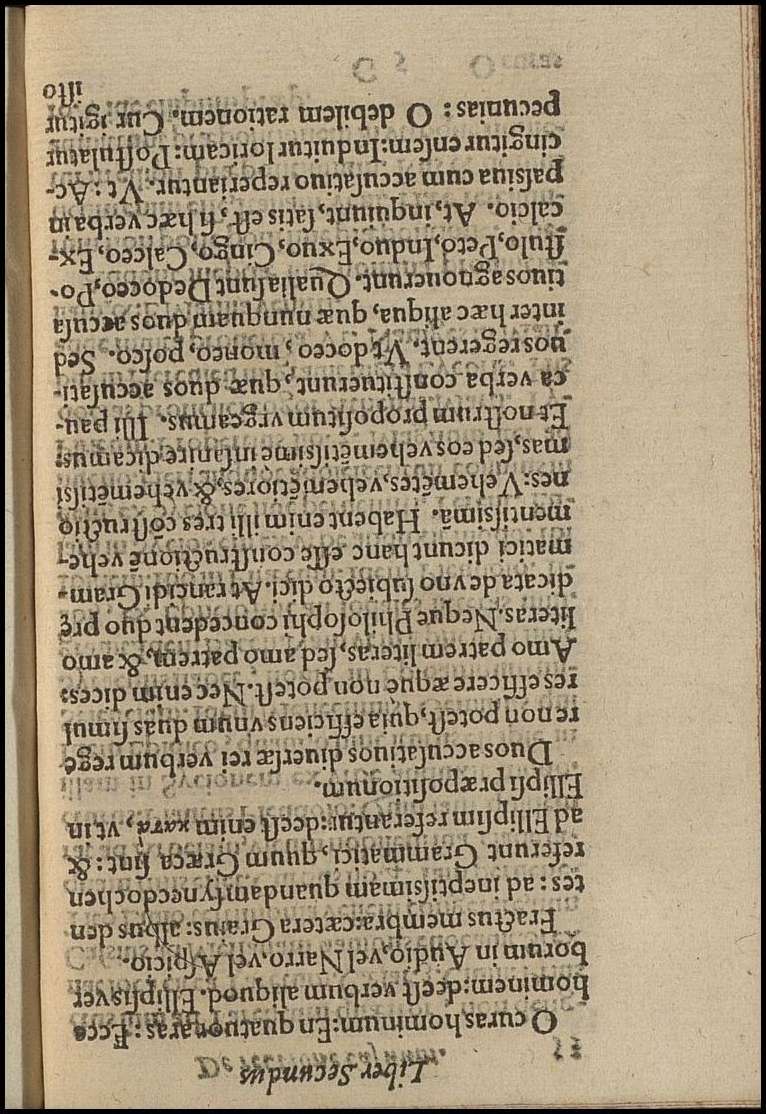 Liber Secundus
O curas hominum: En quatuor aras: Ecce
hominem: deest verbum aliquod. Ellipsis ver
borum in Audio, vel Narro, vel Aspicio.
Fractus membra: cætera Graius: albus den
tes: ad ineptissimam quandam synecdochen
referunt Grammatici, quum Græca sint: &
ad Ellipsim referantur: deest enim κατὰ, vt in
Ellipsi præpositionum.
Duos accusatiuos diuersæ rei verbum rege
re non potest, quia efficiens vnum duas simul
res efficere æque non potest. Nec enim dices:
Amo patrem literas, sed amo patrem, & amo
literas. Neque Philosophi concedent duo prę
dicata de vno subiecto dici. At rancidi Gram-
matici dicunt hanc esse constructionē vehe-
mentissimā. Habent enim illi tres cōstructio
nes: Vehemētes, vehemētiores, & vehemētissi
mas, sed eos vehemētissime insanire dicamus:
Et nostrum propositum vrgeamus. Illi pau-
ca verba constituerunt, quæ duos accusati-
uos regerent. Vt doceo, moneo, posco. Sed
inter hæc aliqua, quæ nunquam duos accusa
tiuos agnouerunt. Qualia sunt Dedoceo, Po-
stulo, Peto, Induo, Exuo, Cingo, Calceo, Ex-
calcio. At, inquiunt, satis est, si hæc verba in
passiua cum accusatiuo reperiantur. Vt: Ac-
cingitur ensem: Induitur loricam: Postulatur
pecunias: O debilem rationem. Cur igitur
isto